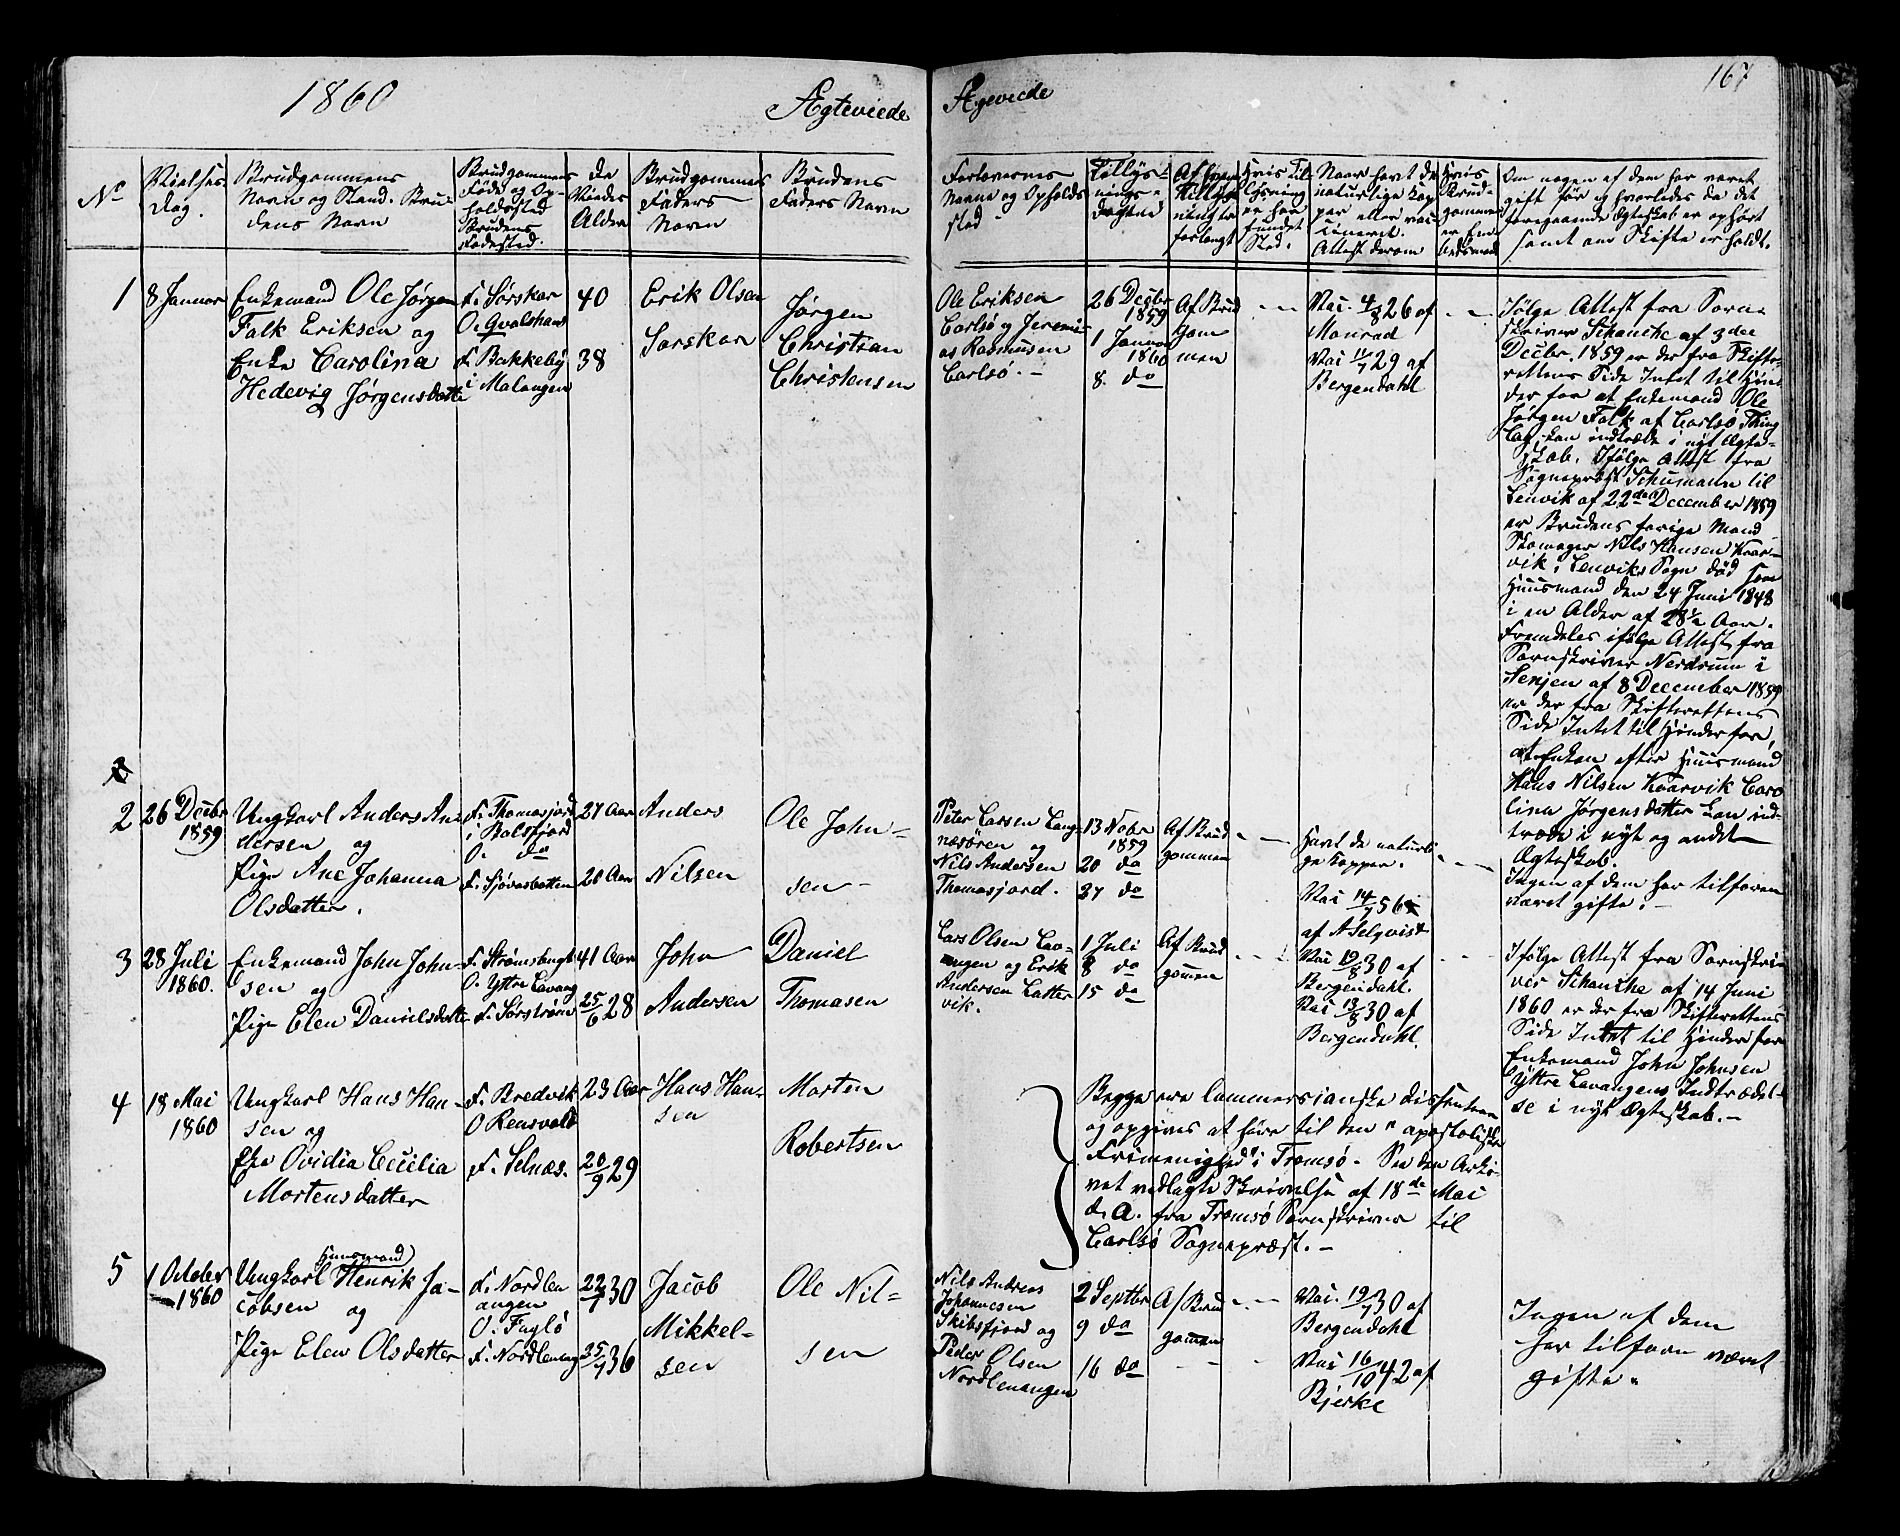 1860
Ægteviede
Ægeviede
167
No
Vielses
Dag.
Brudgommens
Navn og Stand. Bru-
dens Navn
Brudgommens
Føde og Op-
holdssted
Brudens
Fødested.
De
Viedes
Alder
Brudgommens
Faders
Navn
Brudens
Faders Navn
Forlovernes
Navne og Opholds
sted
Tillys-
nings-
dagene
Af hvem
Tillys-
ning er
forlangt
Hvis Til-
lysning
er har
fundet
Sted.
Naar havt de
naturlige Kop
per eller vac-
cineret.
Attest derom
Hvis
Brud-
gommen
er Em-
bedsmand
Om nogen af dem har været
gift før og hvorledes da det
foregaaende Ægteskab er ophørt
samt om Skifte er holdt.
1
8 Januar
Enkemand Ole Jørgen
Falk Eriksen og
Enke Carolina
Hedevig Jørgensdatte
F. Sørskar
O. Gvalshaus
F. Bakkeby
i Malangen
40
38
Erik Olsen
Sørskar
Jørgen
Christian
Christensen
Ole Eriksen
Carlsø og Jeremi-
as Rasmusen
Carlsø. -
26 Decbr
1859
1 Januar
1860
8. do
Af Brud
gom
men
Vac. 4/8 26 af
Monrad
Vac 11/7 29 af
Bergendahl
Ifølge Attest fra Soren-
skriver Schanche af 3die
Decbr. 1859 er der fra Skifte-
rettens Side Intet til Hin-
der for at Enkemand Ole
Jørgen Falk af Carlsø Thing
lag, kan indtræde i nyt Ægte-
skab. Ifølge Attest fra
Sognepræst Schumann til
Lenvik af 22den December 1859
er Brudens forrige Mand
Skomager Nils Hansen Kvar-
vik i Lenviks Sogn død som
Huusmand den 24 Juni 1848
i en Alder af 28½ Aar.
Fremdeles ifølge Attest fra
Sorenskriver Nerdrum i
Senjen af 8 December 1859
er der fra Skifterettens
Side Intet til Hinder for,
at Enken efter Huusmand
Hans Nilsen Kvarvik Caro
lina Jørgensdatter kan ind-
træde i nyt og andet
Ægteskab.
2
26 Decbr
1859
Ungkarl Anders An-
dersen og
Pige Ane Johanna
Olsdatter.
F. Thomasjord
i Balsfjord
O. do
F. Sjøvasbotten
27 Aar
20 Aar
Anders
Nilsen
Ole John-
sen -
Peter Larsen Lang-
nesøren og
Nils Andersen
Thomasjord.
13 Novbr
1859
20 do
27 do
Af Brud
gommen
Havt de naturli-
ge Kopper.
Vac 14/7 56
af A Selqvist
Ingen af dem har tilforn
været gifte. -
3
28 Juli
1860.
Enkemand John John-
sen og
Pige Elen Danielsdatte
F. Strømsbugt
O. Yttre Lavang
F. Sørstrøm
41 Aar
25/6 28
John
Andersen
Daniel
Thomasen
Lars Olsen Lav-
angen og Erik
Andersen Latter
vik.
1 Juli
8 do
15 do
Af Brud
gomen
Vac 19/8 30 af
Bergendahl.
Vac 13/8 30 af
Bergendahl.
Ifølge Attest fra Sorenskri-
ver Schanche af 14 Juni
1860 er der fra Skifterettens
Side Intet til Hinder for
Enkemand John Johnsen
Yttre Lavangens Indtrædel-
se i nyt Ægteskab. -
4
18 Mai
1860
Ungkarl Hans Han-
sen og
Pige Ovidia Cecilia
Mortensdatter
F. Bredvik
O Rensvold
F. Selnæs.
23 Aar
20/9 29
Hans Han-
sen
Morten
Robertsen
Begge ere Lammersianske Dissentere
og opgives at høre til den "apostoliske
Frimenighed" i Tromsø. See den Arki-
vet vedlagte Skrivelse af 18de Mai
d. A. fra Tromsø Sorenskriver til
Carlsø Sognepræst. -
5
1 October
1860
Huusmand
Ungkarl Henrik Ja-
cobsen og
Pige Elen Olsdatter
F. Nordlen
angen
O. Fuglø
F. Nordlenag
22/1 30
25/7 36
Jacob
Mikkel-
sen
Ole Nil-
sen
Nils Andreas
Johannesen
Skibsfjord og
Peder Olsen
Nordlenangen
2 Septbr
9 do
16 do
Af Brud
gomen
Vac. 19/7 30 af
Bergendahl
Vac 16/10 42 af
Bjerke
Ingen af dem
har tilforn været
gifte.